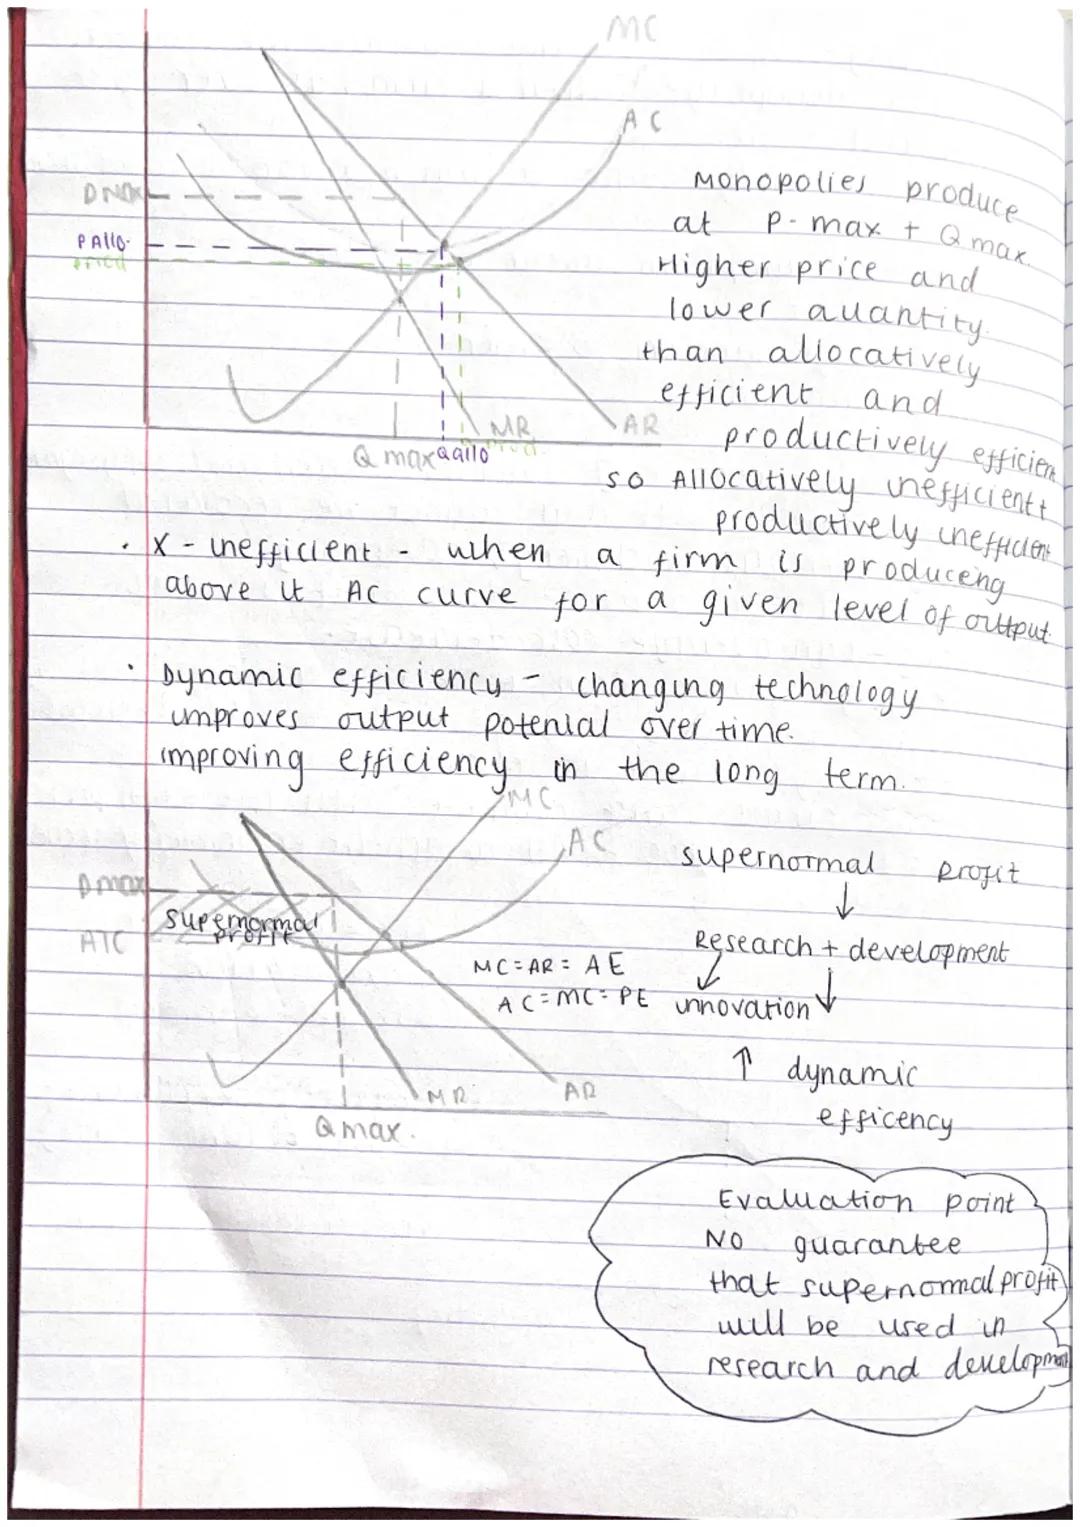 MC
AC
Pmax
P Allo.
Pricd
MR
AR
Q max Qallo
Monopolies produce
at P-max + Q max.
Higher price and
lower quantity.
than allocatively
efficient and
productively efficient
so Allocatively inefficient +
productively inefficient
· X - inefficient - when a firm is produceng
above it AC curve for a given level of output.
· Dynamic efficiency - changing technology
improves output potenial over time.
improving efficiency in the long term.
MC
AC
Pmax
supernormal
profit
ATC
MC=AR= AE
AC=MC= PE
MR
AR
Q max.
supernormal profit
↓
Research + development
innovation
↑ dynamic
efficency
Evaluation point
NO guarantee
that supernormal profit
will be used in
research and development